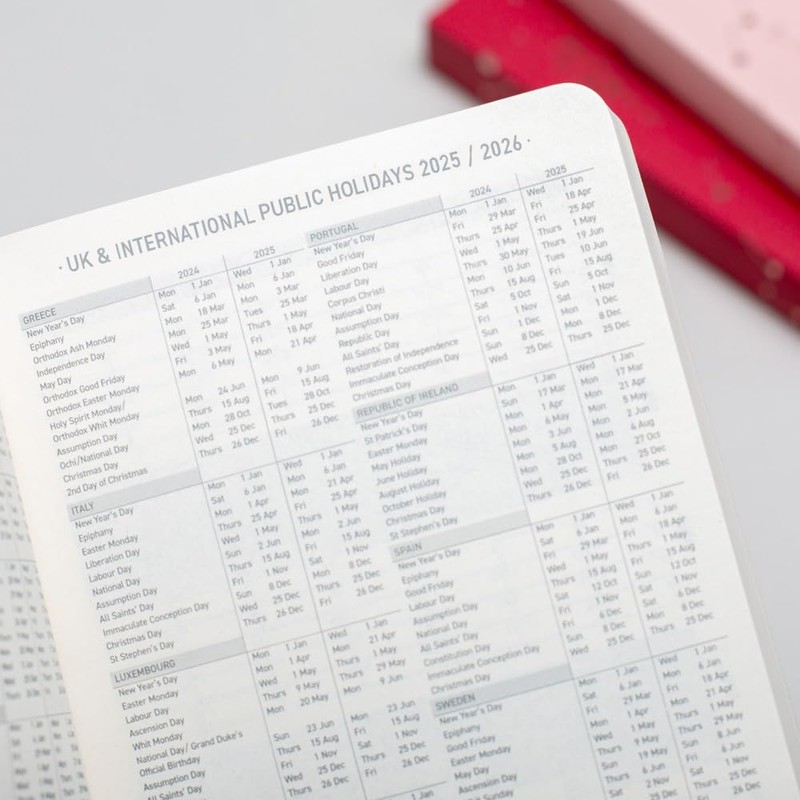 · UK & INTERNATIONAL PUBLIC HOLIDAYS 2025 / 2026 ·
2024 2025
GREECE
New Year's Day Mon 1 Jan Wed 1 Jan
Epiphany Sat 6 Jan Mon 6 Jan
Orthodox Ash Monday Mon 18 Mar Mon 3 Mar
Independence Day Mon 25 Mar Tues 25 Mar
May Day Wed 1 May Thurs 1 May
Orthodox Good Friday Fri 3 May Fri 18 Apr
Orthodox Easter Monday Mon 6 May Mon 21 Apr
Holy Spirit Monday/
Orthodox Whit Monday Mon 24 Jun Mon 9 Jun
Assumption Day Thurs 15 Aug Fri 15 Aug
Ochi/National Day Mon 28 Oct Tues 28 Oct
Christmas Day Wed 25 Dec Thurs 25 Dec
2nd Day of Christmas Thurs 26 Dec Fri 26 Dec
ITALY
New Year's Day Mon 1 Jan Wed 1 Jan
Epiphany Sat 6 Jan Mon 6 Jan
Easter Monday Mon 1 Apr Mon 21 Apr
Liberation Day Thurs 25 Apr Fri 25 Apr
Labour Day Wed 1 May Thurs 1 May
National Day Sun 2 Jun Mon 2 Jun
Assumption Day Thurs 15 Aug Fri 15 Aug
All Saints' Day Fri 1 Nov Sat 1 Nov
Immaculate Conception Day Sun 8 Dec Mon 8 Dec
Christmas Day Wed 25 Dec Thurs 25 Dec
St Stephen's Day Thurs 26 Dec Fri 26 Dec
LUXEMBOURG
New Year's Day Mon 1 Jan Wed 1 Jan
Easter Monday Mon 1 Apr Mon 21 Apr
Labour Day Wed 1 May Thurs 1 May
Ascension Day Thurs 9 May Thurs 29 May
Whit Monday Mon 20 May Mon 9 Jun
National Day/ Grand Duke's
Official Birthday Sun 23 Jun Mon 23 Jun
Assumption Day Thurs 15 Aug Fri 15 Aug
All Saints' Day Fri 1 Nov Sat 1 Nov
Wed 25 Dec Thurs 25 Dec
Thurs 26 Dec Fri 26 Dec
2024 2025
PORTUGAL
New Year's Day Mon 1 Jan Wed 1 Jan
Good Friday Fri 29 Mar Fri 18 Apr
Liberation Day Thurs 25 Apr Fri 25 Apr
Labour Day Wed 1 May Thurs 1 May
Corpus Christi Thurs 30 May Thurs 19 Jun
National Day Mon 10 Jun Tues 10 Jun
Assumption Day Thurs 15 Aug Fri 15 Aug
Republic Day Sat 5 Oct Sun 5 Oct
All Saints' Day Fri 1 Nov Sat 1 Nov
Restoration of Independence Sun 1 Dec Mon 1 Dec
Immaculate Conception Day Sun 8 Dec Mon 8 Dec
Christmas Day Wed 25 Dec Thurs 25 Dec
REPUBLIC OF IRELAND
New Year's Day Mon 1 Jan Wed 1 Jan
St Patrick's Day Sun 17 Mar Mon 17 Mar
Easter Monday Mon 1 Apr Mon 21 Apr
May Holiday Mon 6 May Mon 5 May
June Holiday Mon 3 Jun Mon 2 Jun
August Holiday Mon 5 Aug Mon Aug
October Holiday Mon 28 Oct Mon 27 Oct
Christmas Day Wed 25 Dec Thurs 25 Dec
St Stephen's Day Thurs 26 Dec Fri 26 Dec
SPAIN
New Year's Day Mon 1 Jan Wed 1 Jan
Epiphany Sat 6 Jan Mon 6 Jan
Good Friday Fri 29 Mar Fri 18 Apr
Labour Day Wed 1 May Thurs 1 May
Assumption Day Thurs 15 Aug Fri 15 Aug
National Day Sat 12 Oct Sun 12 Oct
All Saints' Day Fri 1 Nov Sat 1 Nov
Constitution Day Fri 6 Dec Sat 6 Dec
Immaculate Conception Day Sun 8 Dec Mon 8 Dec
Christmas Day Wed 25 Dec Thurs 25 Dec
SWEDEN
New Year's Day Mon 1 Jan Wed 1 Jan
Epiphany Sat 6 Jan Mon 6 Jan
Good Friday Fri 29 Mar Fri 18 Apr
Easter Monday Mon 1 Apr Mon 21 Apr
May Day Wed 1 May Thurs 1 May
Ascension Day Thurs 9 May Thurs 29 May
Sunday Sun 19 May Sun 8 Jun